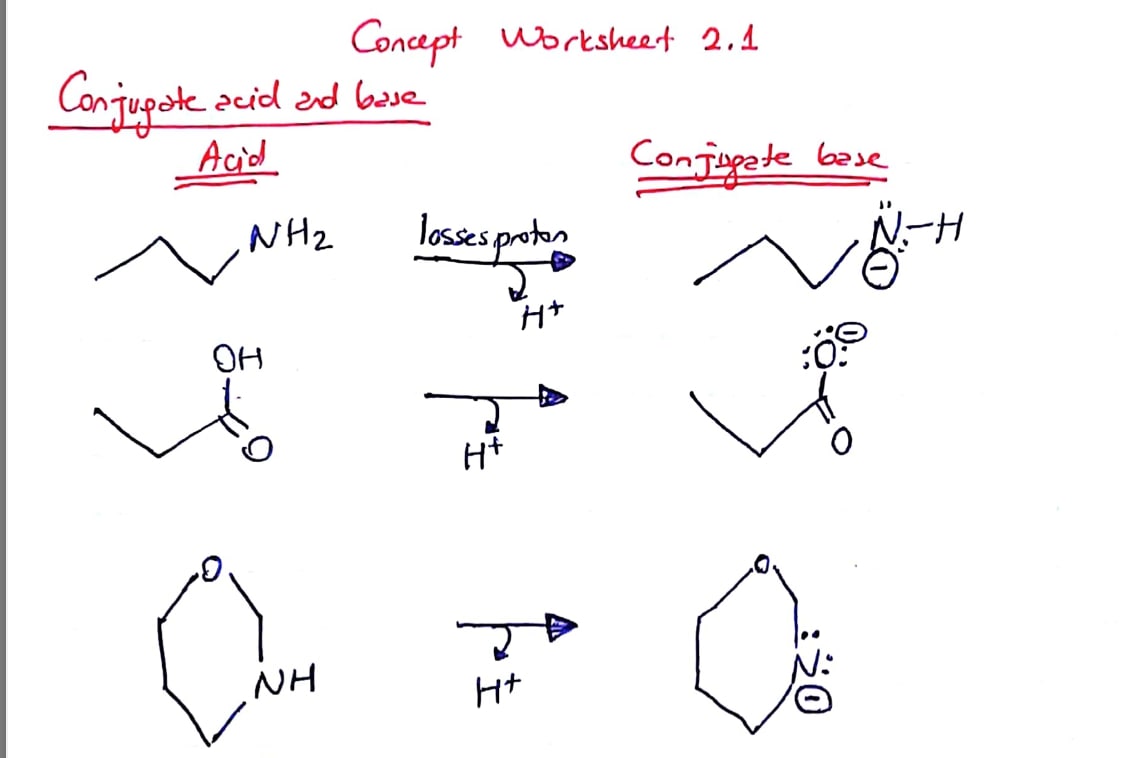 Concept Worksheet 2.1
Conjugate acid and base
Acid
Conjugate base
NH2
losses proton
H+
N-H
⊖
OH
O
H+
:O:
⊖
O
O
NH
H+
O
N:
⊖